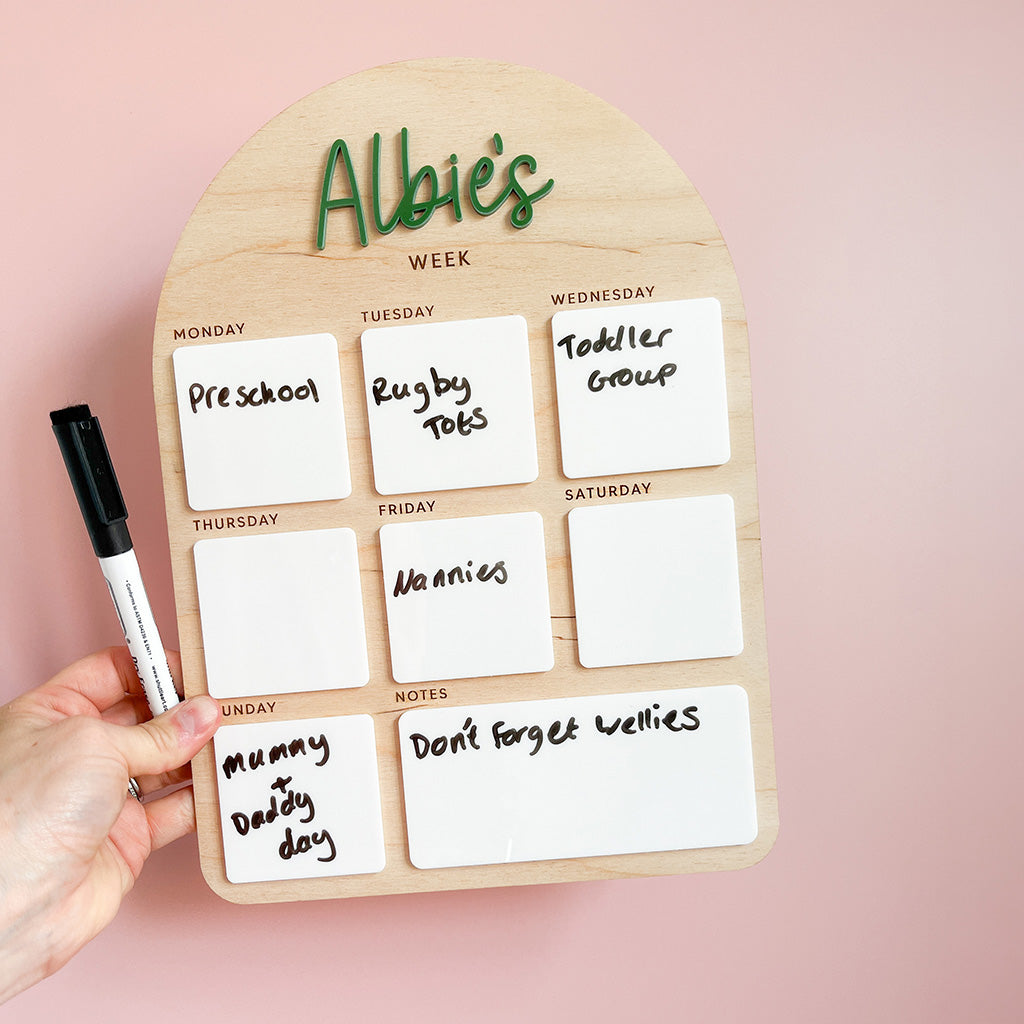 Albie's
WEEK
MONDAY
Preschool
TUESDAY
Rugby
Tots
WEDNESDAY
Toddler
Group
THURSDAY
FRIDAY
Nannies
SATURDAY
UNDAY
Mummy
+
Daddy
day
NOTES
Don't Forget Wellies
• Conforms to ASTM D4236 & EN71 •